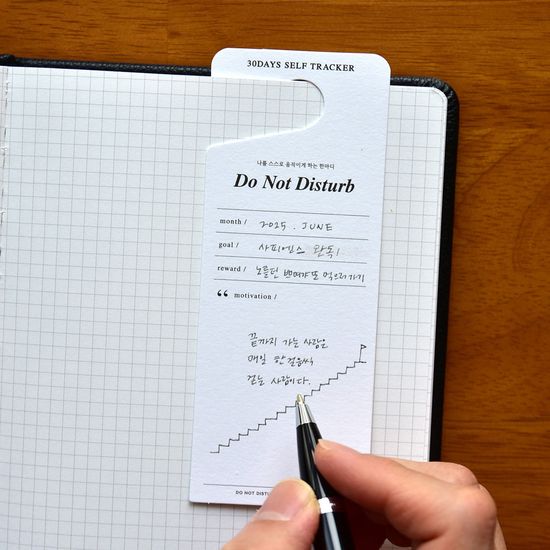 30DAYS SELF TRACKER
나를 스스로 움직이게 하는 한마디
Do Not Disturb
month / 2025 . JUNE
goal / 사피엔스 완독!
reward / 노들먼 먹으러가기
“ motivation /
끝까지 가는 사람은
매일 한 걸음씩
걷는 사람이다.
DO NOT DISTU